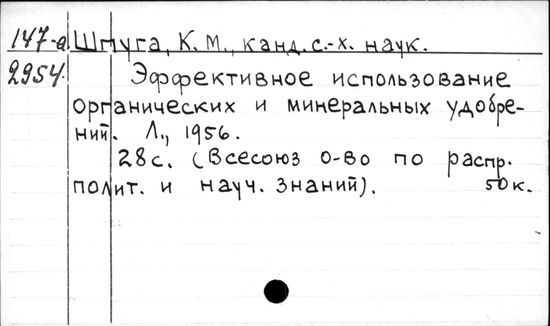 147-а Шпуга, К. М., канд. с.-х. наук.
2954. Эффективное использование
органических и минеральных удобре-
ний. Л., 1956.
28 с. (Всесоюз о-во по распр.
полит. и науч. знаний). 50 к.